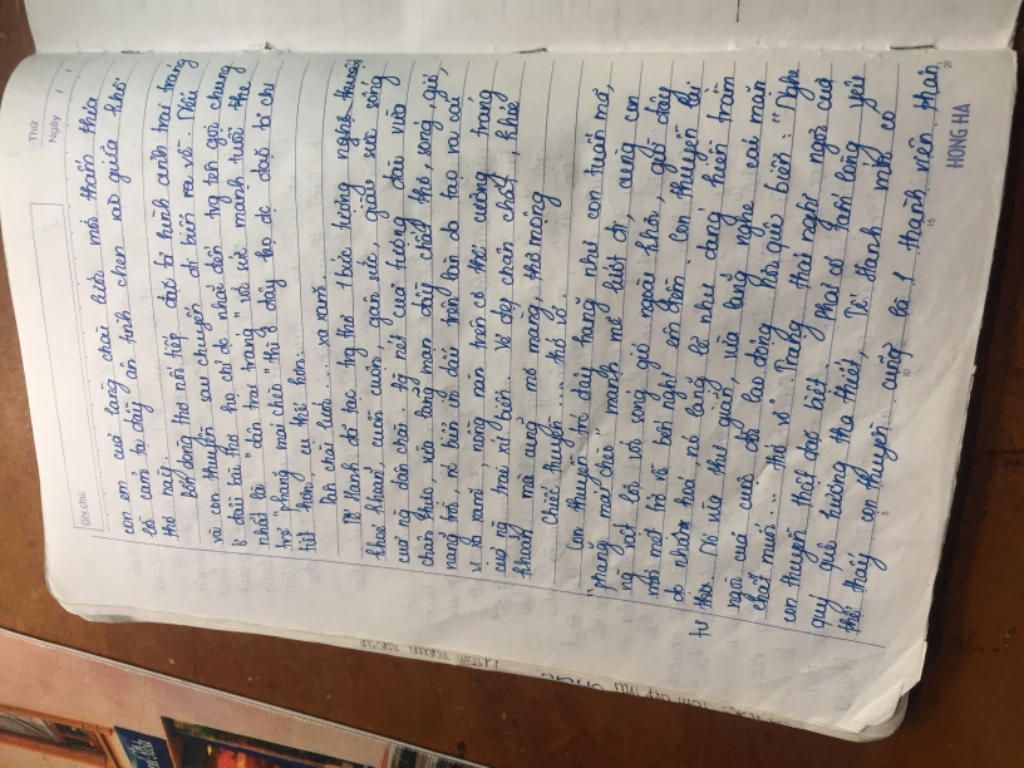 Thứ
Ngày
Ghi chú:
con em của làng chài lưới một thân thừa
lá cảm ta đầy ân tình chen vào giữa khổ
thơ này.
Bốn dòng thơ nối tiếp đặc tả hình ảnh trai tráng
và con thuyền sau chuyến đi biển ra về. Nếu
ở đầu bài thơ họ chỉ đc nhắc đến = tên gọi chung
nhất là "dân trai tráng" với sức mạnh tuổi trẻ
trở "phăng mái chèo" thì giờ đây họ đc đặc tả chi
tiết hơn, cụ thể hơn:
Dân chài lưới ..... xa xăm.
Tế Hanh đã tạc trong thơ 1 bức tượng nghệ thuật
khoẻ khoắn, cuồn cuộn gân sức, giàu sức sống
của ng dân chài. Từ nét của tượng đài vừa
chân thực, vừa lãng mạn đầy chất thơ, sóng, gió,
nắng trời, nc biển vô đâu trên làn da tạo ra cái
vị xa xăm, nồng nàn trên cơ thể cường tráng
của ng trai xứ biển. Vẻ đẹp chân chất, khoẻ
khoắn mà cũng mơ màng, thơ mộng.
Chiếc thuyền .......... thớ vỏ.
Con thuyền trở đây hăng như con tuấn mã,
"phăng mái chèo mạnh mẽ lướt đi, cùng con
ng vật lộn với sóng gió ngoài khơi, giờ đây
mỏi mệt trở về bến nghỉ êm đềm. Con thuyền lại
đc nhân hoá, nó lặng lẽ như đang huền trầm
tư thiu. Nó vừa thư giãn, vừa lắng nghe cái mặn
ngòi của cuộc đời lao động hoà quê biển: "Nghe
chất muối ... thớ vỏ". Trạng thái nghỉ ngơi của
con thuyền thật đặc biệt. Phải có tấm lòng yêu
quý quê hương tha thiết, Tế Hanh mới có
thể thấy con thuyền cũng là 1 thành viên thân
5
10
15
20
HONG HA